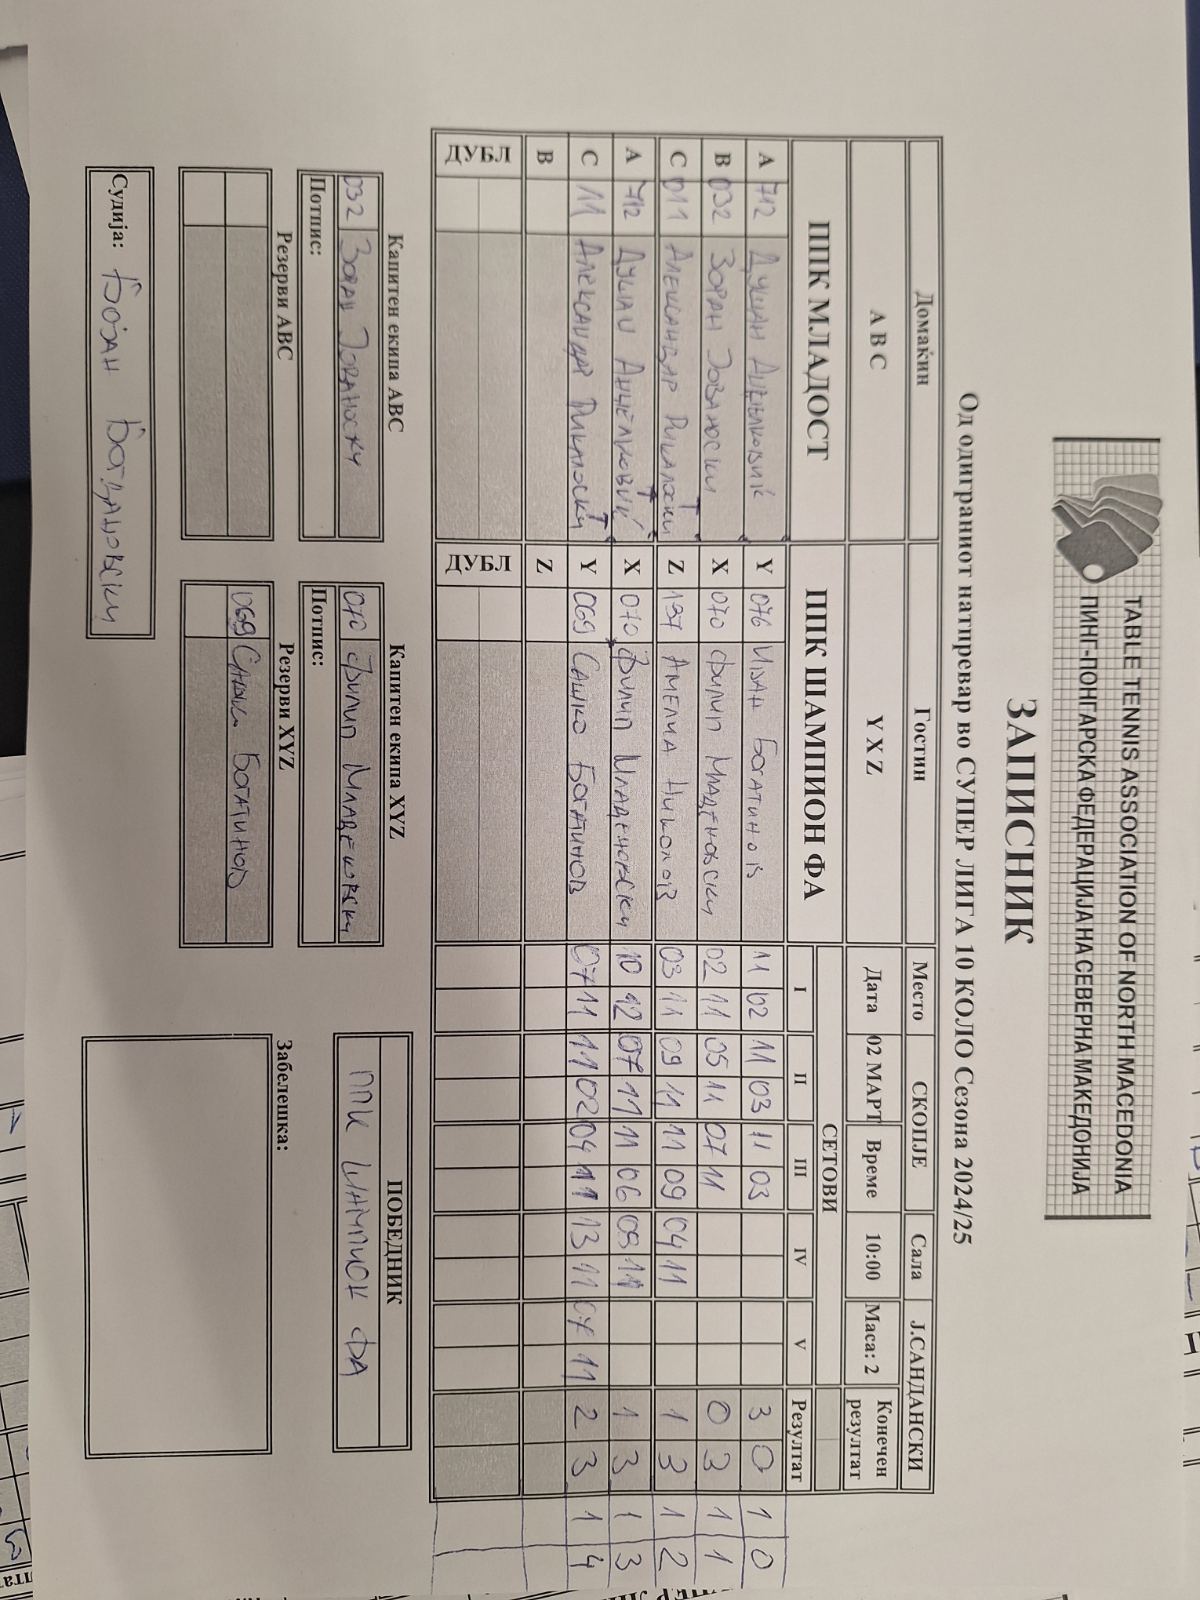 TABLE TENNIS ASSOCIATION OF NORTH MACEDONIA
ПИНГ-ПОНГАРСКА ФЕДЕРАЦИЈА НА СЕВЕРНА МАКЕДОНИЈА
ЗАПИСНИК
Од одиграниот натпревар во СУПЕР ЛИГА 10 КОЛО Сезона 2024/25
Домаќин Гостин Место СКОПЈЕ Сала Ј.САНДАНСКИ
A B C Y X Z Дата 02 МАРТ Време 10:00 Маса: 2 Конечен резултат
ППК МЛАДОСТ ППК ШАМПИОН ФА СЕТОВИ
I II III IV V Резултат
A 712 ДУШАН Y 076 ИВАН БОГАТИНОВ 11 02 11 03 11 03 3 0 1 0
B 032 ЗОРАН ЈОВАНОСКИ X 070 ФИЛИП МЛАДЕНОВСКИ 02 11 05 11 07 11 0 3 1 1
C 011 АЛЕКСАНДАР Z 197 АМЕЛИА НИКОЛОВ 03 11 09 11 11 09 04 11 1 3 1 2
A 712 ДУШАН X 070 ФИЛИП МЛАДЕНОВСКИ 10 12 07 11 11 06 09 11 1 3 1 3
C 11 АЛЕКСАНДАР Y 069 САШКО БОГАТИНОВ 07 11 11 02 04 11 13 11 07 11 2 3 1 4
B Z
ДУБЛ ДУБЛ
Капитен екипа ABC Капитен екипа XYZ ПОБЕДНИК
032 ЗОРАН ЈОВАНОСКИ 070 ФИЛИП МЛАДЕНОВСКИ ППК ШАМПИОН ФА
Потпис: Потпис:
Резерви ABC Резерви XYZ Забелешка:
069 БОГАТИНОВ
Судија: БОЈАН БОГДАНОВСКИ